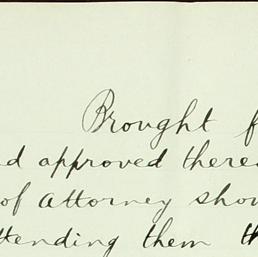 Brought f
nd approved there
of Attorney shou
ttending them th